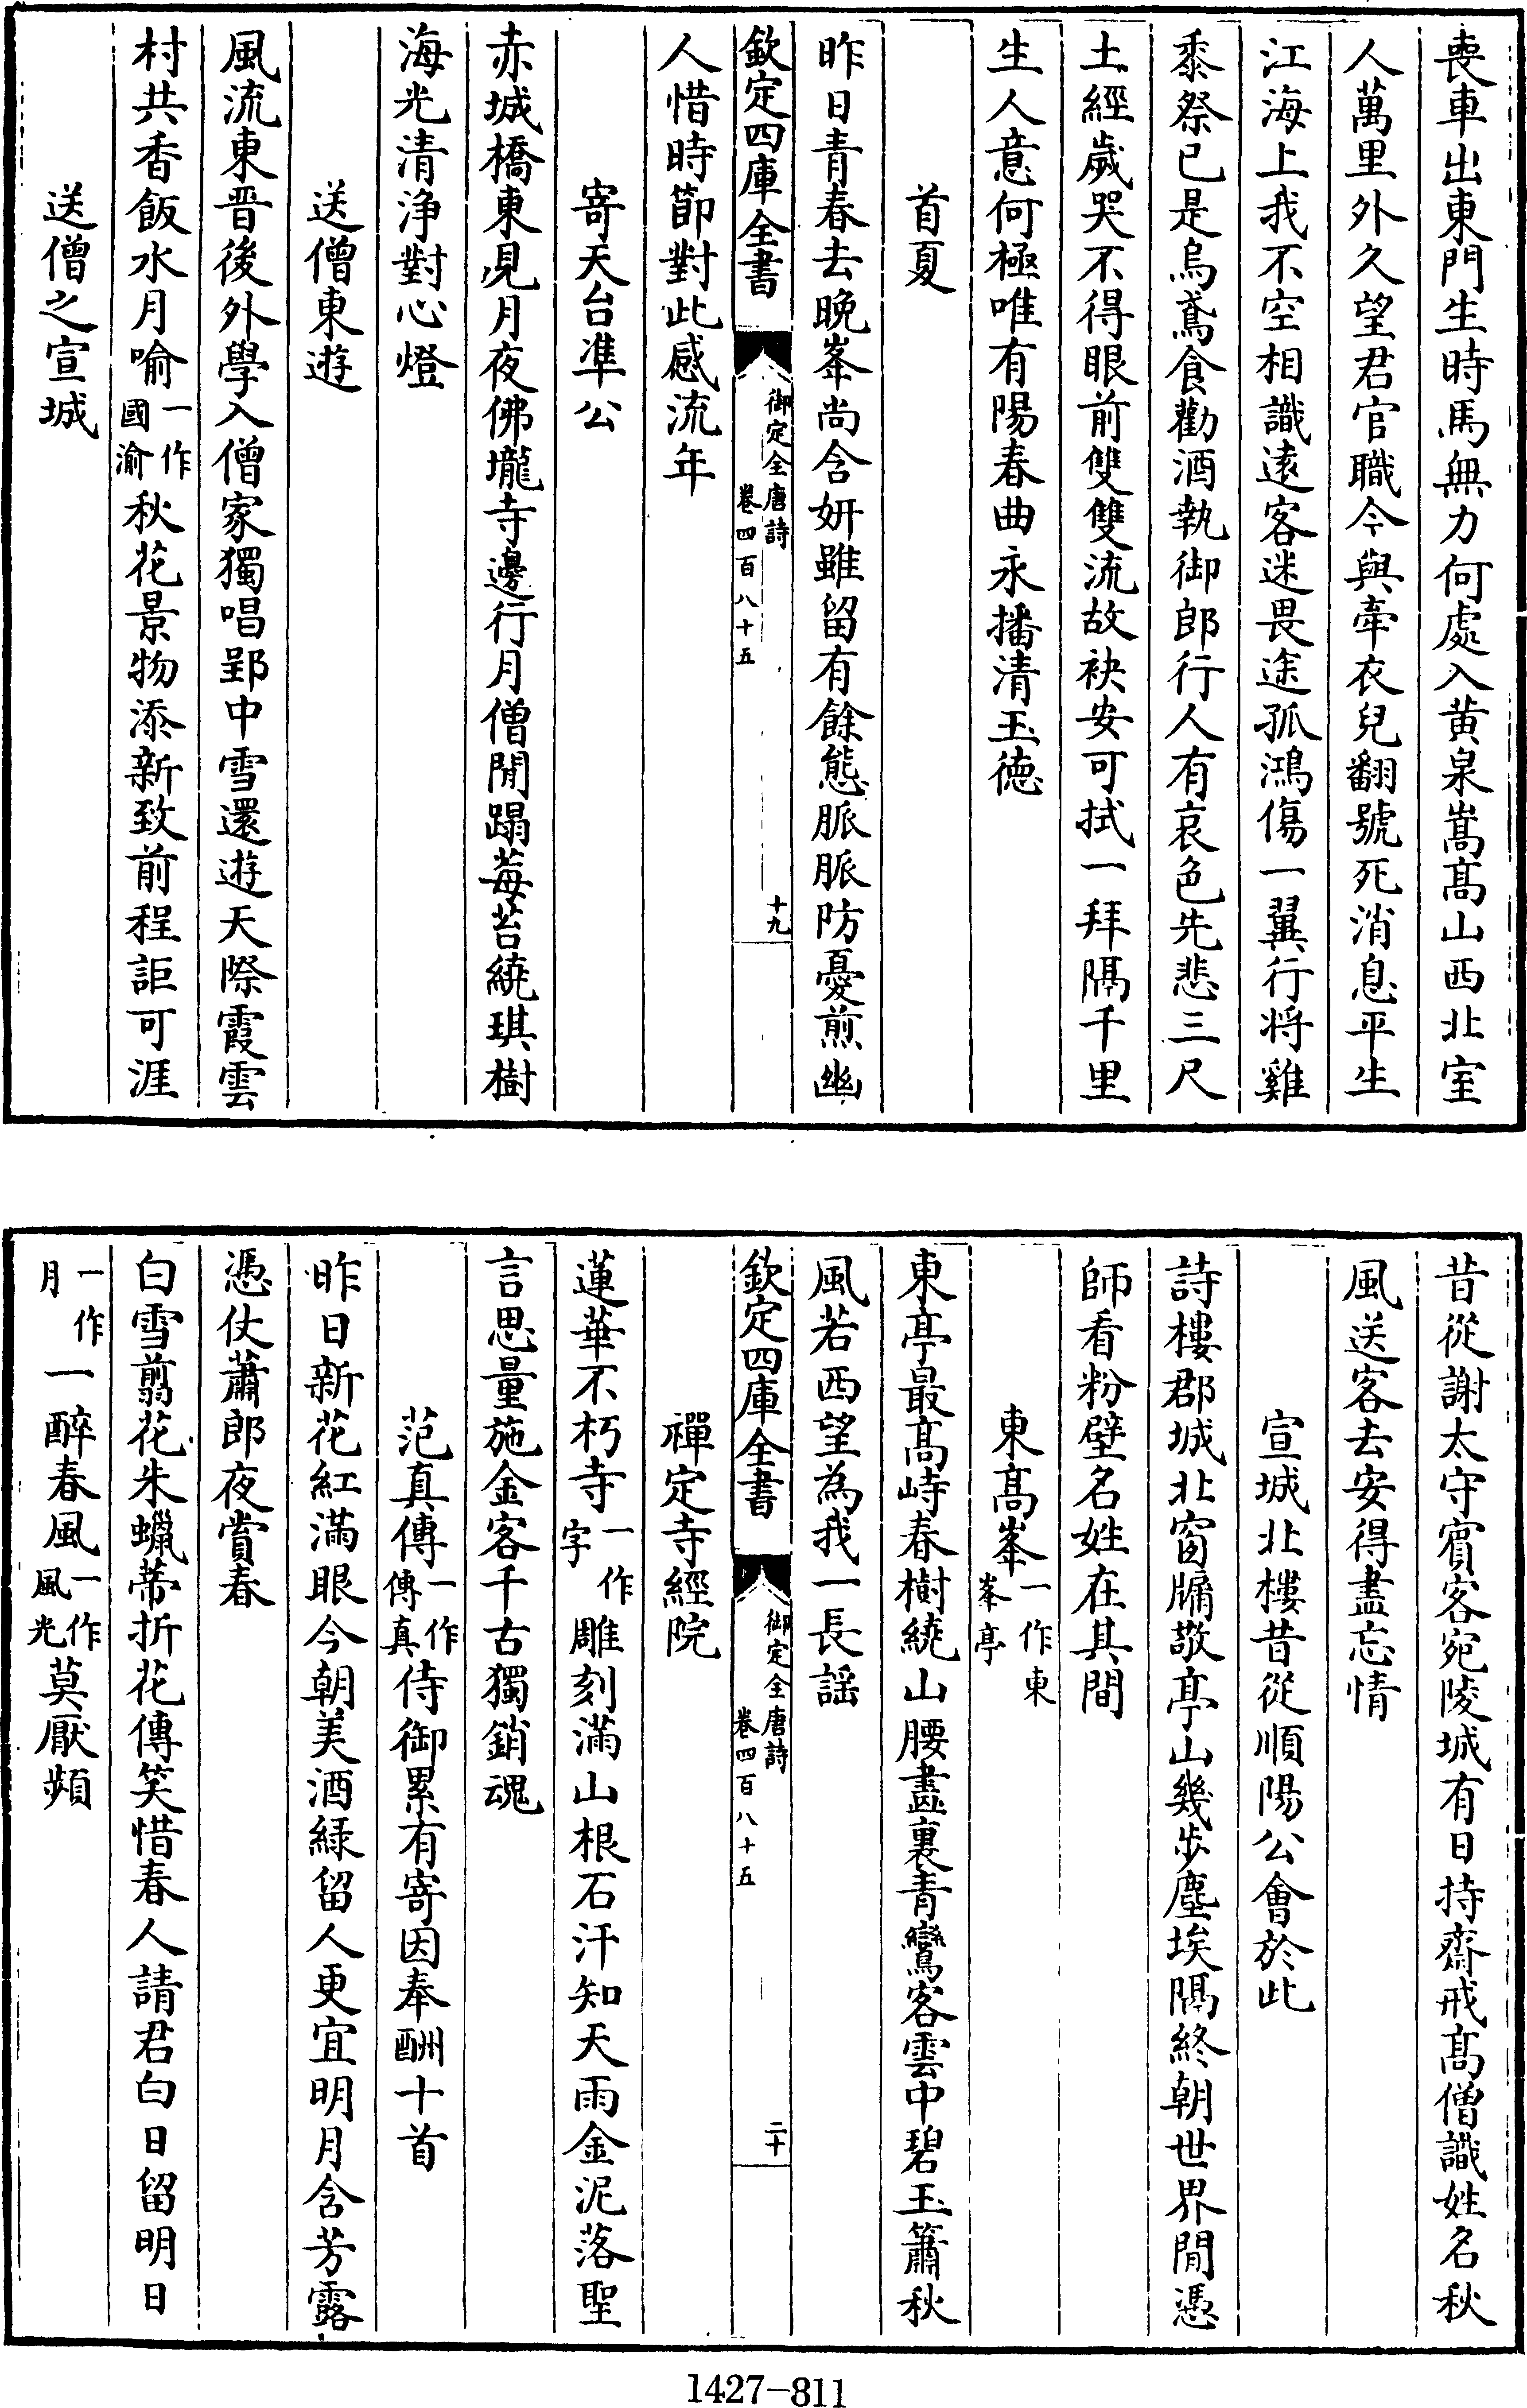 喪車出東門生時馬無力何處入黄泉嵩髙山西北室
人萬里外久望君官職今與牽衣兒翻號死消息平生
江海上我不空相識逺客迷畏途孤鴻傷一翼行将雞
黍祭已是烏鳶食勸酒執御郎行人有哀色先悲三尺
土經嵗哭不得眼前雙雙流故袂安可拭一拜隔千里
生人意何極唯有陽春曲永播清玉徳
首夏
昨日青春去晚峯尚含妍雖留有餘態脈脈防憂煎幽
欽定四庫全書
御定全唐詩
卷四百八十五
十九
人惜時節對此感流年
寄天台凖公
赤城橋東見月夜佛壠寺邊行月僧閒蹋莓苔繞琪樹
海光清浄對心燈
送僧東遊
風流東晉後外學入僧家獨唱郢中雪還遊天際霞雲
村共香飯水月喻一作國渝秋花景物添新致前程詎可涯
送僧之宣城
昔從謝太守賓客宛陵城有日持齋戒髙僧識姓名秋
風送客去安得盡忘情
宣城北樓昔從順陽公會於此
詩樓郡城北窗牖敬亭山幾步塵埃隔終朝世界閒憑
師看粉壁名姓在其間
東髙峯一作東峯亭
東亭最髙峙春樹繞山腰畫裏青鸞客雲中碧玉簫秋
風若西望為我一長謡
欽定四庫全書
御定全唐詩
卷四百八十五
二十
禪定寺經院
蓮華不朽寺一作字雕刻滿山根石汗知天雨金泥落聖
言思量施金客千古獨銷魂
范真傳一作傳真侍御累有寄因奉酬十首
昨日新花紅滿眼今朝美酒緑留人更宜明月含芳露
憑仗蕭郎夜賞春
白雪翦花朱蠟蒂折花傳笑惜春人請君白日留明日
一作月一醉春風一作風光莫厭頻
1427-811